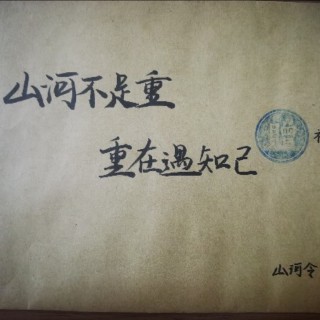 山河不足重
重在遇知己
山河令